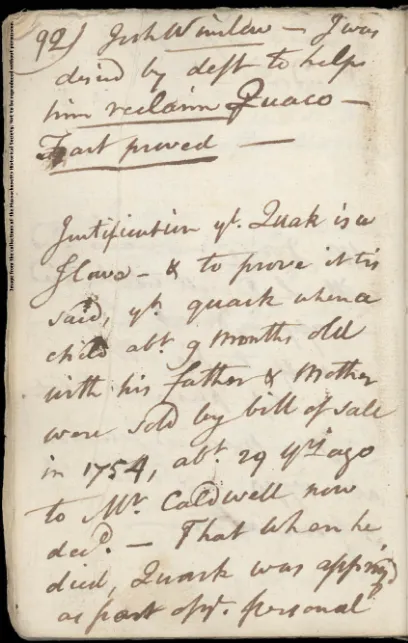 92) Josh Winslow — I was
desired by deft to help
him reclaim Quaco —
Fact proved —
Justification yt. Quak is a
Slave — & to prove it tis
said, yt quack when a
child abt. 9 months old
with his father & Mother
were sold by bill of sale
in 1754, abt. 29 yrs ago
to Mr. Caldwell now
decd. — That when he
died, Quark was apprizd
as part of ye. personal
Image from the collections of the Massachusetts Historical Society. Not to be reproduced without permission.